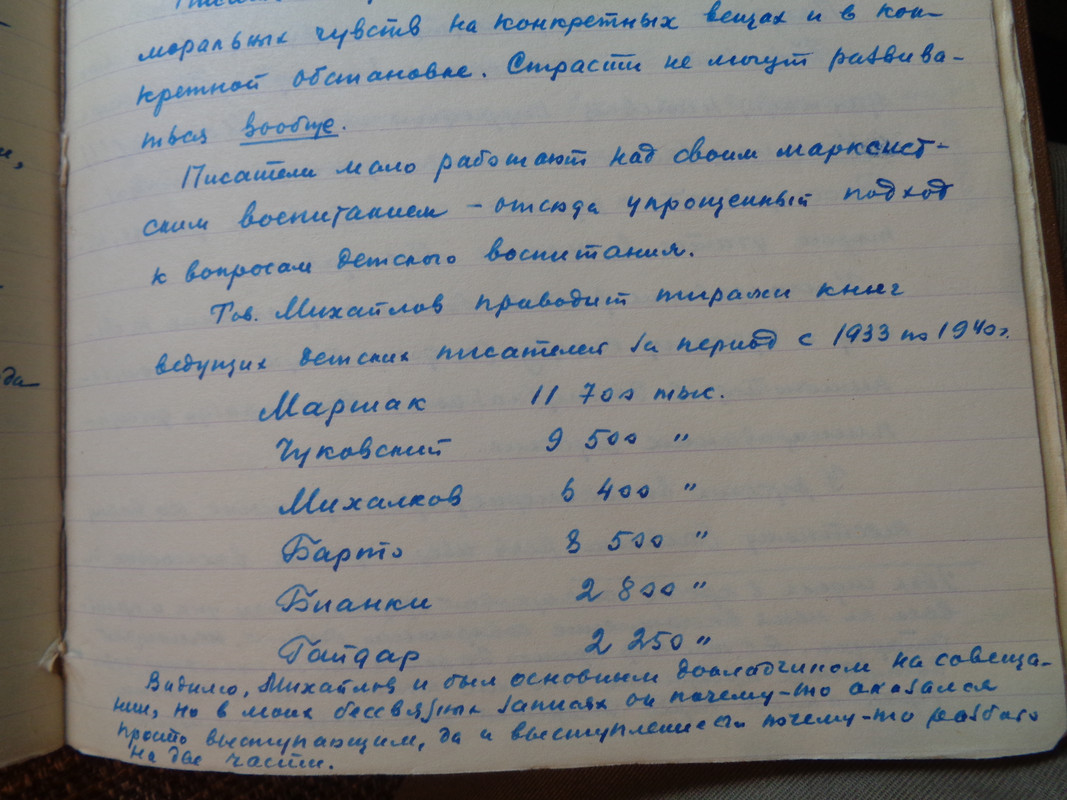 моральных чувств на конкретных вещах и в кон-
кретной обстановке. Страсти не могут развива-
ться вообще.
Писатели мало работают над своим марксист-
ским воспитанием – отсюда упрощенный подход
к вопросам детского воспитания.
Тов. Михайлов приводит тиражи книг
ведущих детских писателей за период с 1933 по 1940 г.
Маршак 11 700 тыс.
Чуковский 9 500 "
Михалков 6 400 "
Барто 3 500 "
Бианки 2 800 "
Гайдар 2 250 "
Видимо, Михайлов и был основным докладчиком на совеща-
нии, но в моих бессвязных записях он почему-то оказался
просто выступающим, да и выступление его почему-то разбито
на две части.